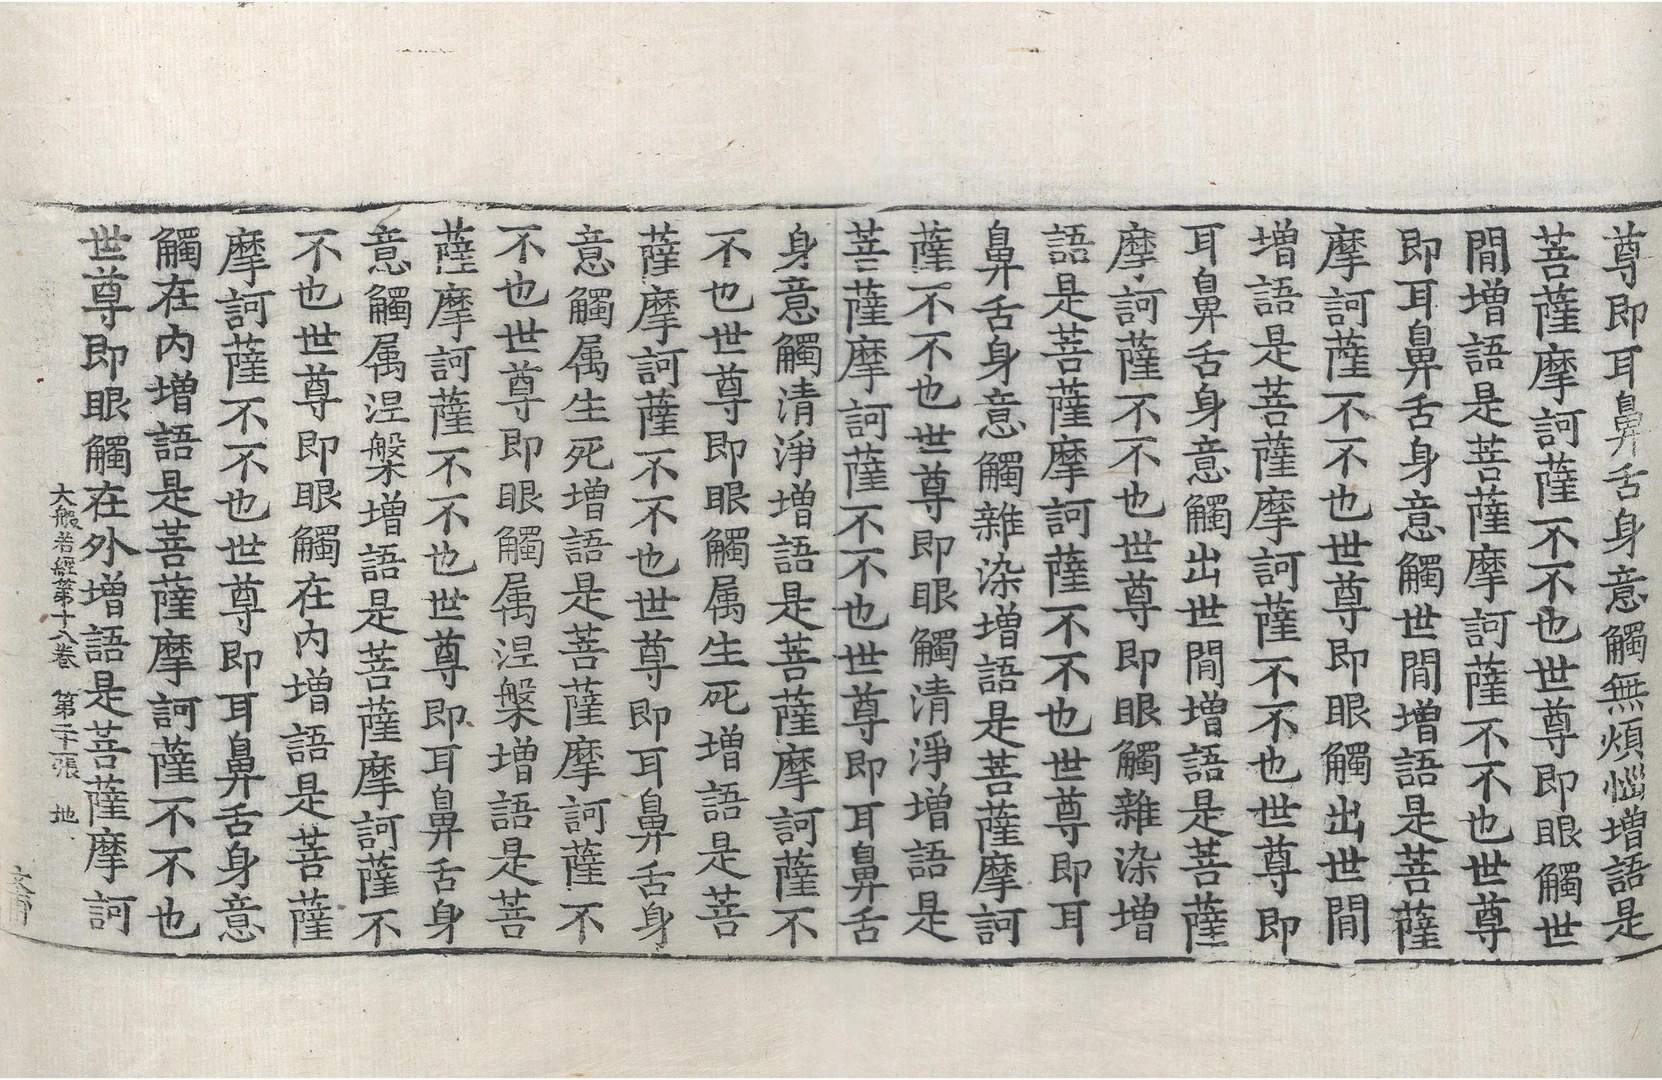 尊即耳鼻舌身意觸無煩惱增語是
菩薩摩訶薩不不也世尊即眼觸世
間增語是菩薩摩訶薩不不也世尊
即耳鼻舌身意觸世間增語是菩薩
摩訶薩不不也世尊即眼觸出世間
增語是菩薩摩訶薩不不也世尊即
耳鼻舌身意觸出世間增語是菩薩
摩訶薩不不也世尊即眼觸雜染增
語是菩薩摩訶薩不不也世尊即耳
鼻舌身意觸雜染增語是菩薩摩訶
薩不不也世尊即眼觸清淨增語是
菩薩摩訶薩不不也世尊即耳鼻舌
身意觸清淨增語是菩薩摩訶薩不
不也世尊即眼觸属生死增語是菩
薩摩訶薩不不也世尊即耳鼻舌身
意觸属生死增語是菩薩摩訶薩不
不也世尊即眼觸属涅槃增語是菩
薩摩訶薩不不也世尊即耳鼻舌身
意觸属涅槃增語是菩薩摩訶薩不
不也世尊即眼觸在內增語是菩薩
摩訶薩不不也世尊即耳鼻舌身意
觸在內增語是菩薩摩訶薩不不也
世尊即眼觸在外增語是菩薩摩訶
大般若經第十八卷 第二十張 地